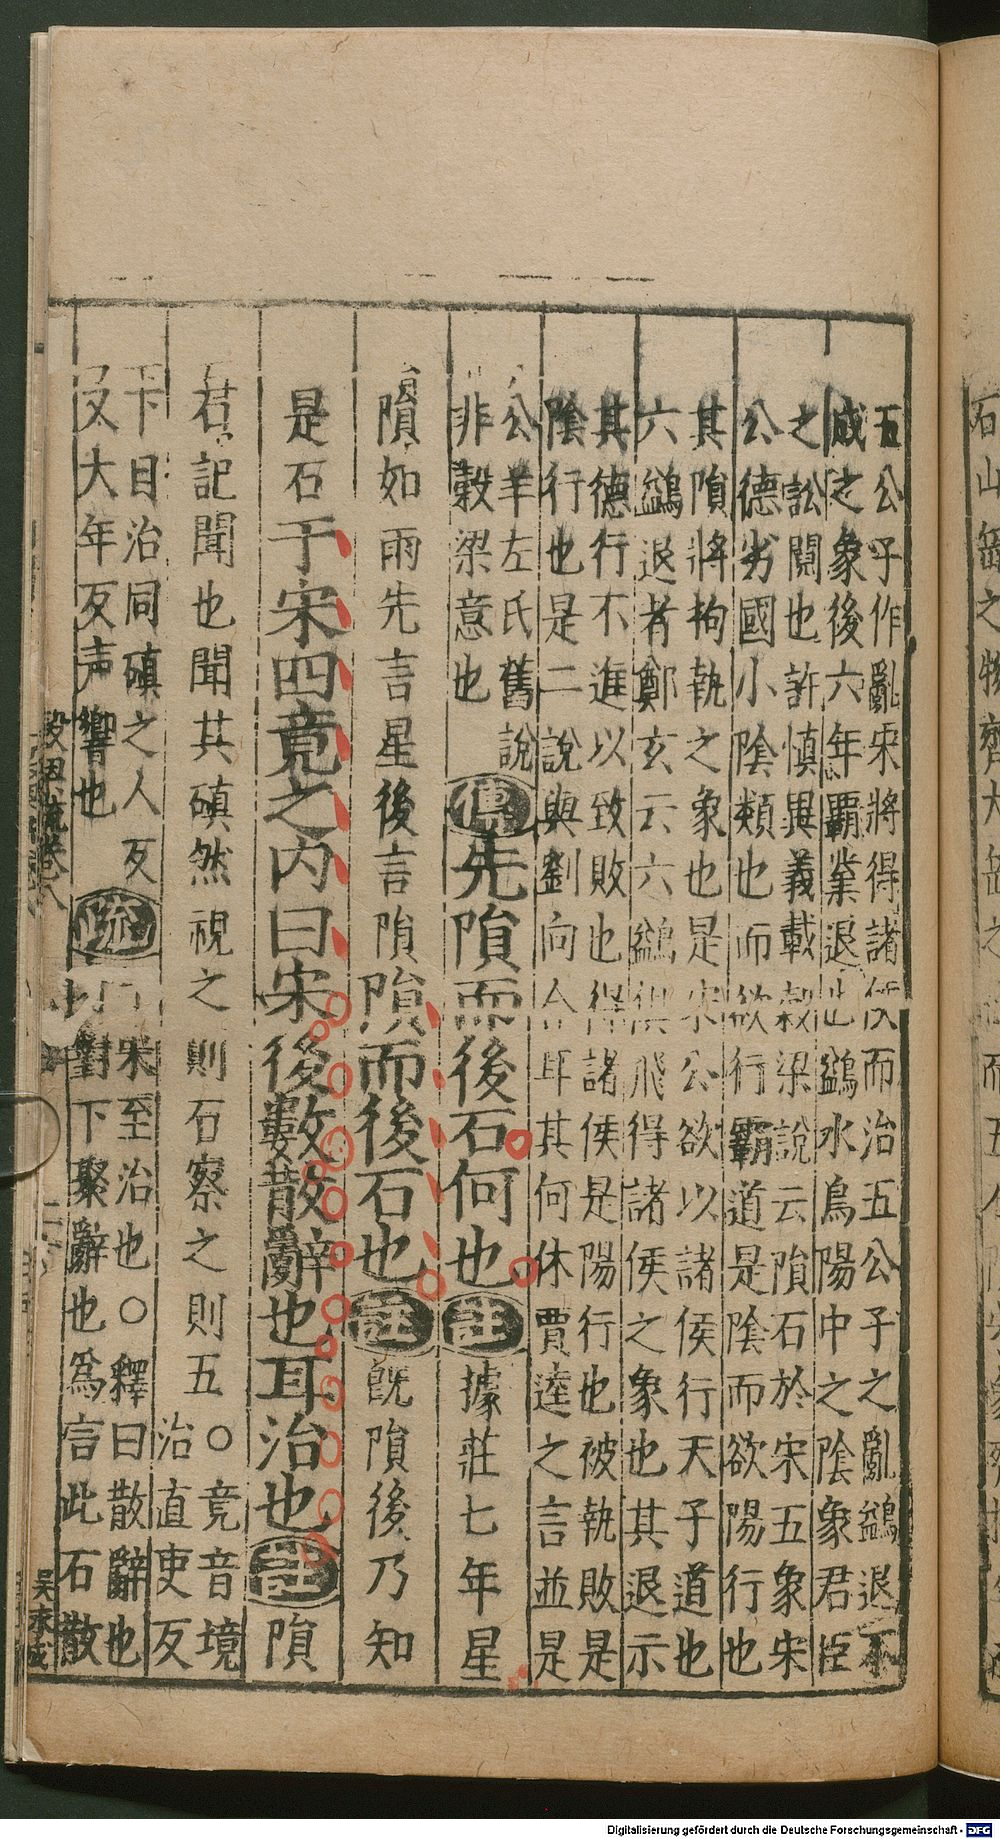 五公子作亂宋將得諸侯而治五公子之亂鷁退不
成之象後六年霸業退也鷁水鳥陽中之陰象君臣
之訟鬩也許慎異義載穀梁說云隕石於宋五象宋
公德劣國小陰類也而欲行霸道是陰而欲陽行也
其隕將拘執之象也是宋公欲以諸侯行天子道也
六鷁退者鄭玄云六鷁俱飛得諸侯之象也其退示
其德行不進以致敗也得諸侯是陽行也被執敗是
陰行也是二說與劉向合耳其何休賈逵之言並是
公羊左氏舊說
非穀梁意也
傳先隕而後石何也註據莊七年星
隕如雨先言星後言隕隕而後石也註既隕後乃知
是石于宋四竟之內曰宋後數散辭也耳治也註隕
石記聞也聞其磌然視之則石察之則五○竟音境
治直吏反
下目治同磌之人反
又大年反声響也
疏于宋至治也○釋曰散辭也
對下聚辭也爲言此石散
穀梁疏卷八
吳永成
Digitalisierung gefördert durch die Deutsche Forschungsgemeinschaft - DFG